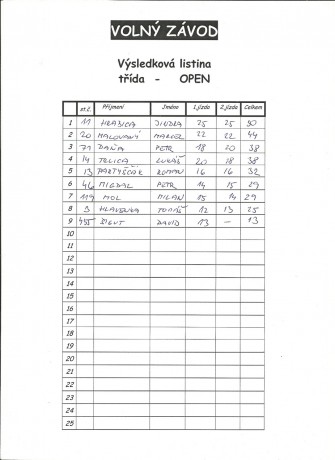 VOLNÝ ZÁVOD
Výsledková listina
třída - OPEN
st.č. Příjmení Jméno 1.jízda 2.jízda Celkem
1 11 HRABICA JINDRA 25 25 50
2 20 MALOVANÝ MAREK 22 22 44
3 71 DAŇA PETR 18 20 38
4 14 TRLICA LUKÁŠ 20 18 38
5 13 PARTYŠČÁK ROMAN 16 16 32
6 46 MIGDAL PETR 14 15 29
7 119 MOL MILAN 15 14 29
8 3 HLAVENKA TOMÁŠ 12 13 25
9 DAVID 13 — 13
10
11
12
13
14
15
16
17
18
19
20
21
22
23
24
25